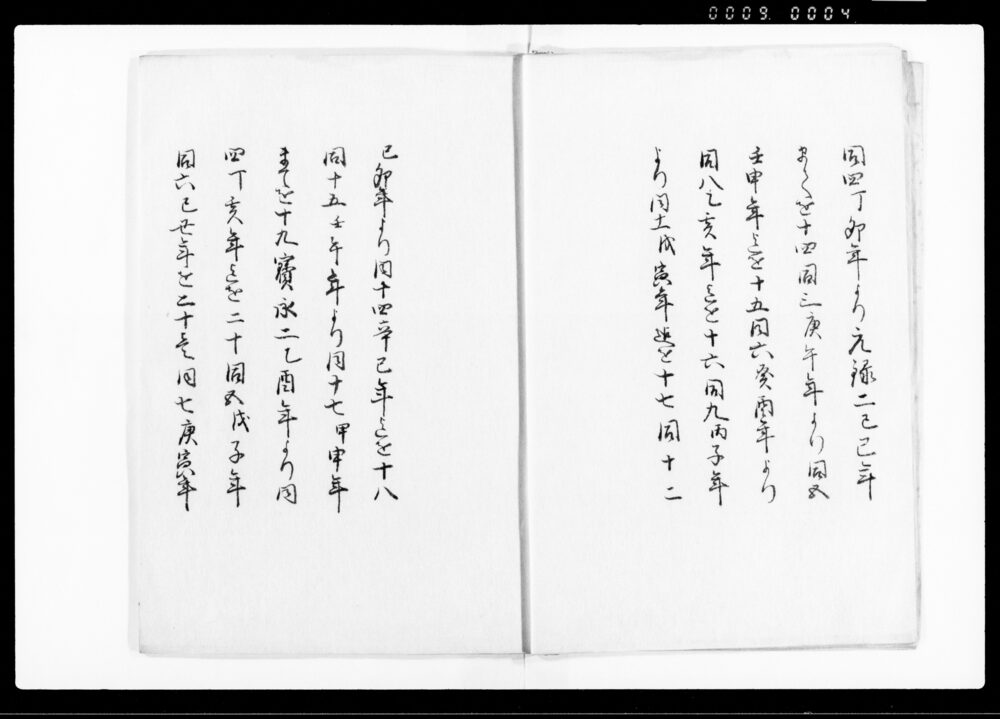 0009 0004
同四丁卯年より元禄二己巳年
まてを十四同三庚午年より同五
壬申年迄を十五同六癸酉年より
同八乙亥年迄を十六同九丙子年
より同十一戊寅年迄を十七同十二
己卯年より同十四辛巳年迄を十八
同十五壬午年より同十七甲申年
まてを十九寳永二乙酉年より同
四丁亥年迄を二十同五戊子年
同六己丑年を二十一同七庚寅年